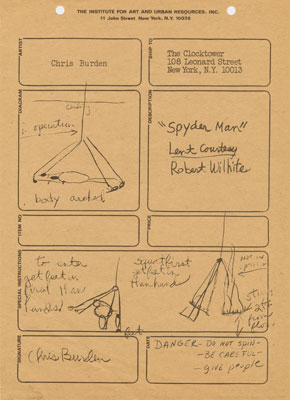 THE INSTITUTE FOR ART AND URBAN RESOURCES, INC.
11 John Street New York, N.Y. 10038
ARTIST
Chris Burden
SHIP TO
The Clocktower
108 Leonard Street
New York, N.Y. 10013
DIAGRAM
operation
body arched
DESCRIPTION
"Spyder Man"
Lent Courtesy
Robert Wilhite
ITEM NO
PRICE
SPECIAL INSTRUCTIONS
to enter
get feet in
first
squat first
get feet in
feet
NOT IN
SIGNATURE
Chris Burden
DATE
DANGER - DO NOT SPIN -
- BE CAREFUL -
- give people